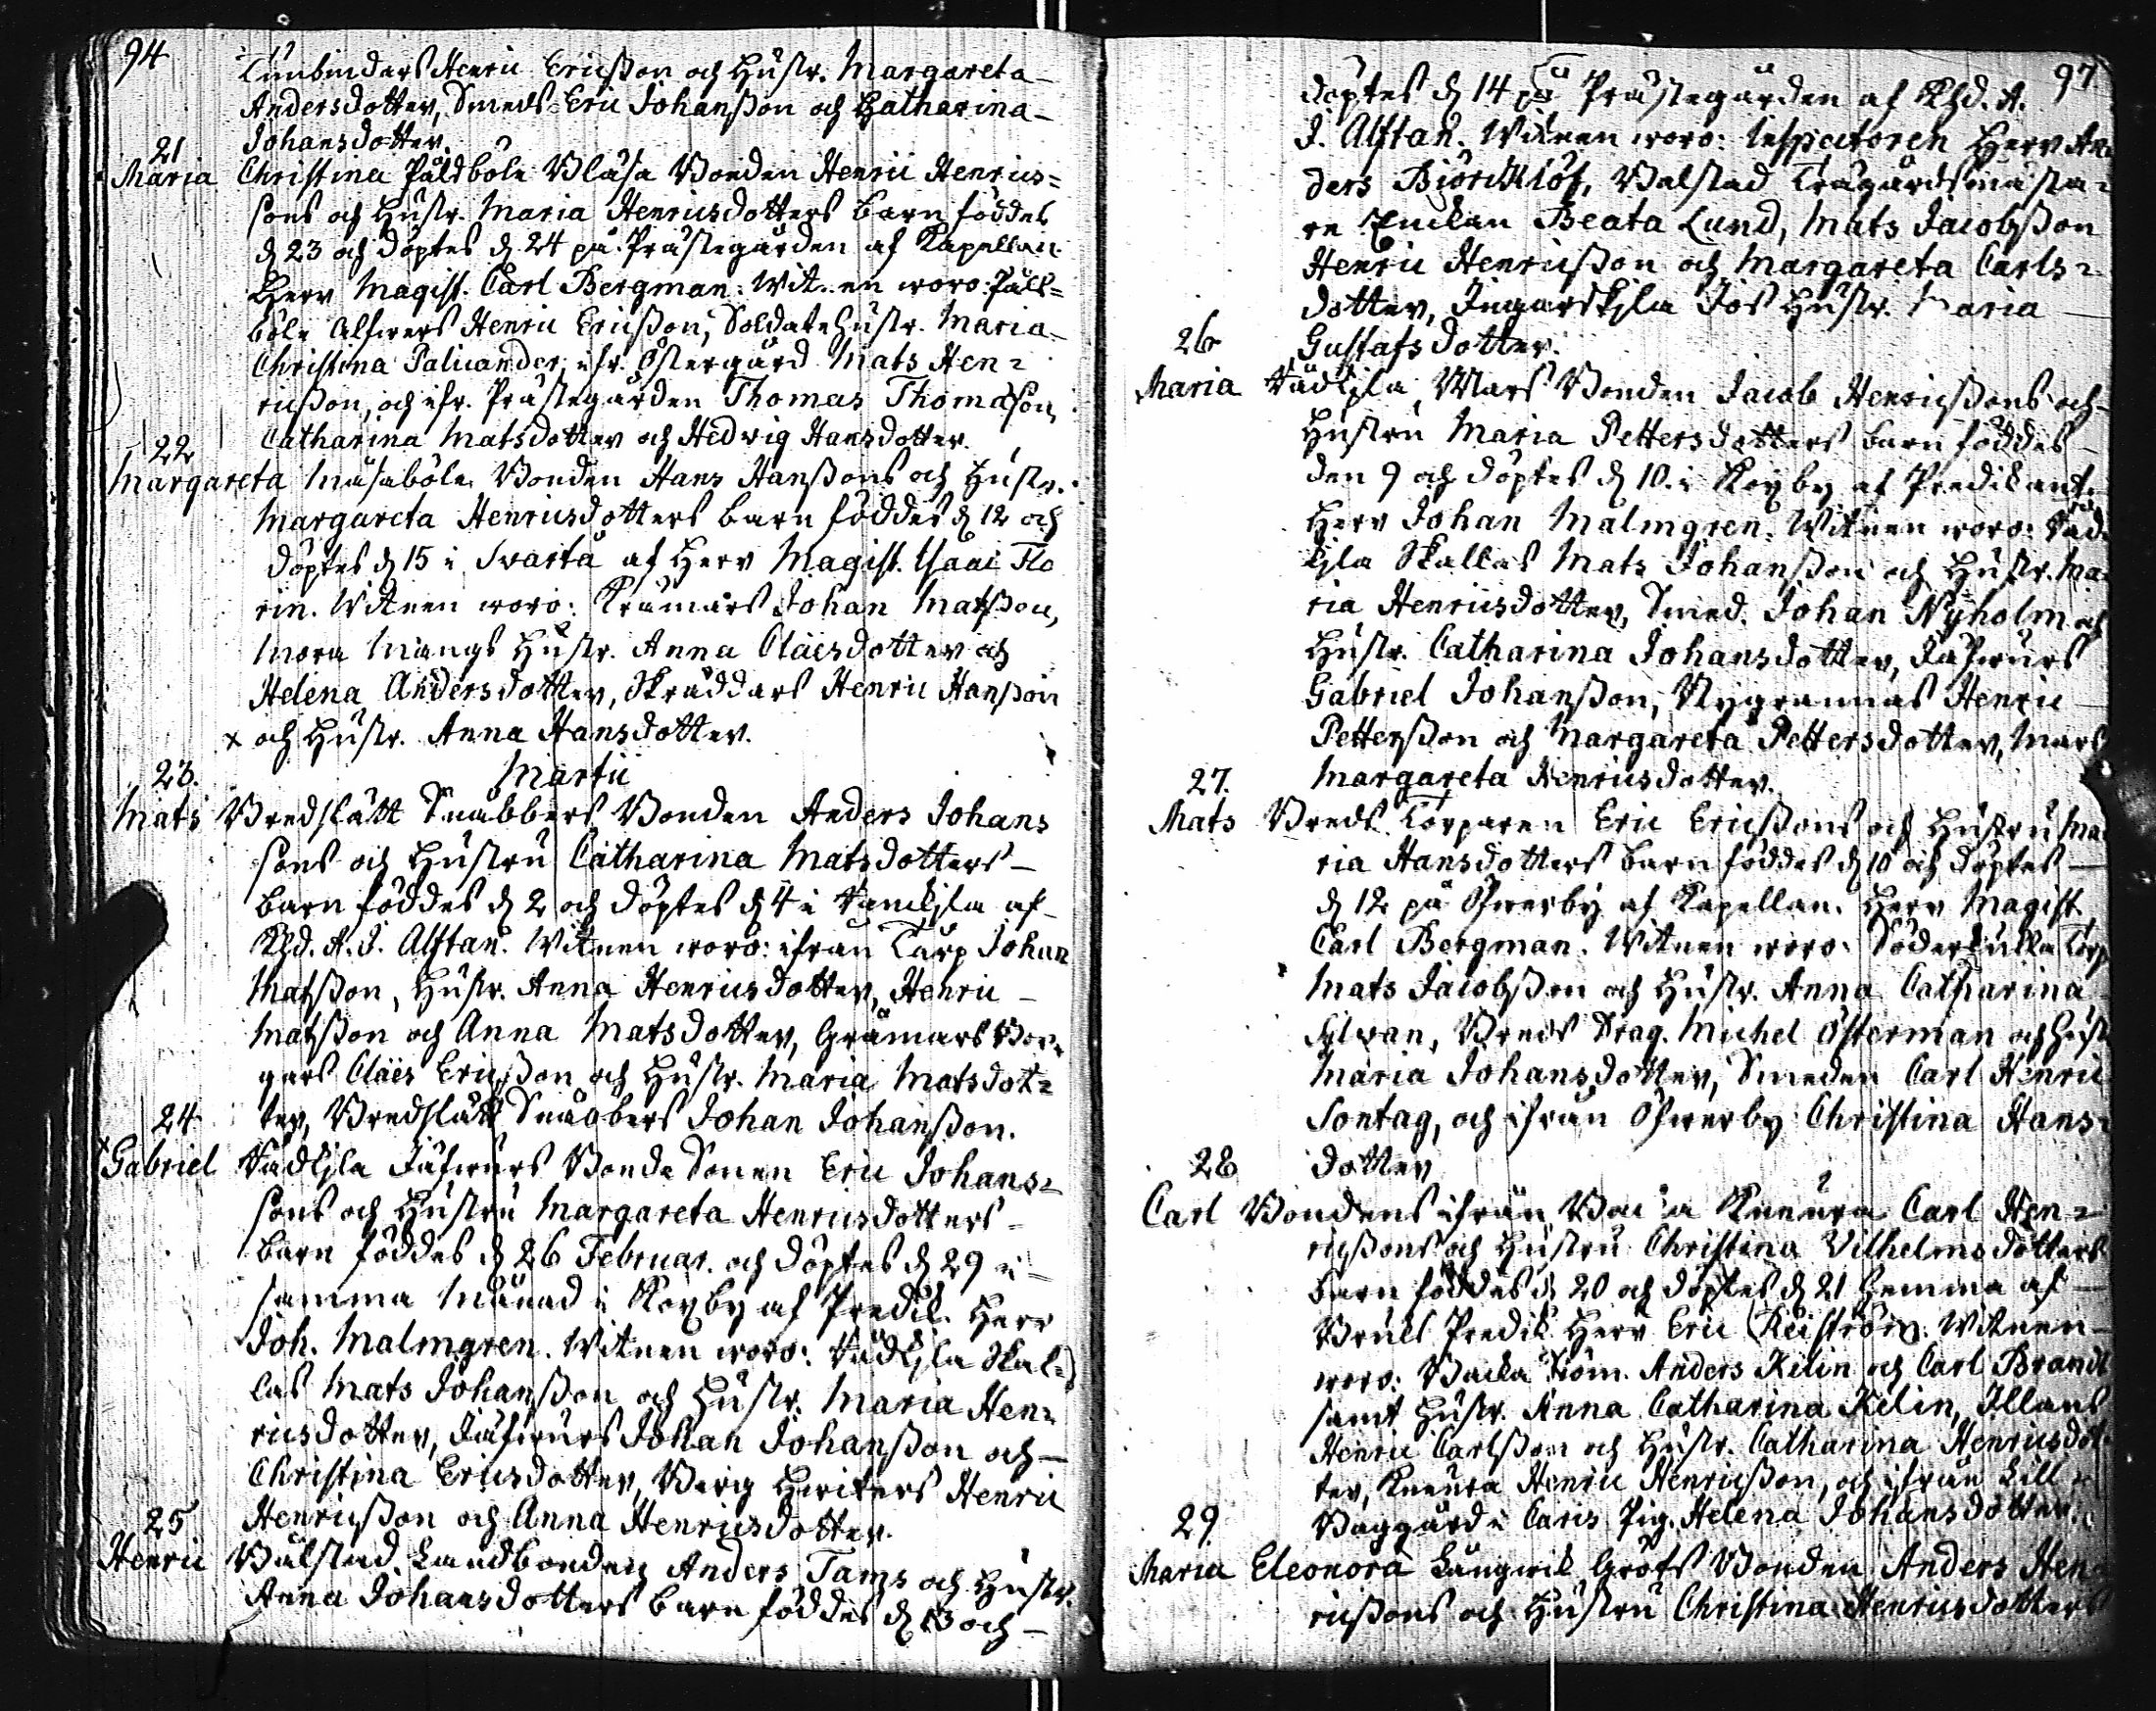 94
Tunbinders Henric Ericsson och Hustr. Margareta
Andersdotter, Smeds Eric Johansson och Catharina
Johansdotter.
21
Maria Christina Påldböle Blåsa Bonden Henric Henrics=
sons och Hustr. Maria Henricsdotters barn föddes
d 23 och döptes d. 24 på Prästegården af Kapellan
Herr Magist. Carl Bergman. Witnen woro: Påld=
böle Henric Ericsson, Soldatehustr. Maria
Christina Palicander, ifr. Östergård Mats Hen=
ricsson, och ifr. Prästegården Thomas Thomasson,
Catharina Matsdotter och Hedvig Hansdotter.
22
Margareta Måsaböle Bonden Hans Hanssons och Hustr.
Margareta Henricsdotters barn föddes d 12 och
döptes d 15 i Svartå af Herr Magist. Isaac Flo
rin. Witnen woro: Krämars Johan Matsson,
Mora Mångs Hustr. Anna Claesdotter och
Helena Andersdotter, Skräddars Henric Hansson
x och Hustr. Anna Hansdotter.
23. Martii
Mats Bredslätt Snabbers Bonden Anders Johans
sons och Hustru Catharina Matsdotters
barn föddes d 2 och döptes d 4 i af
Khd. A. J. Alftan. Witnen woro: ifrån Johan
Matsson, Hustr. Anna Henricsdotter, Henric
Matsson och Anna Matsdotter, Gråmars Bor=
gars Claës Ericsson och Hustr. Maria Matsdot=
ter, Bredslätt Snabbers Johan Johansson.
24
x Gabriel Vädkjla Bonde Sonen Eric Johans=
sons och Hustru Margareta Henricsdotters
barn föddes d 26 Februar. och döptes d 29 i
samma Månad i Koxby af Predik. Herr
Joh. Malmgren. Witnen woro: Vädkjla Skal=
las Mats Johansson och Hustr. Maria Hen=
ricsdotter, Johan Johansson och
Christina Ericsdotter, Berg Henric
Henricsson och Anna Henricsdotter.
25
Henric Bålstad Landbonden Anders Tams och Hustr.
Anna Johansdotters barn föddes d 13 och
97
döptes d 14 på Prästegården af Khd. A.
J. Alftan. Witnen woro: Inspectoren Herr An
ders Biörcklöf, Bålstad Trägårdsmästa=
re Enckan Beata Lund, Mats Jacobsson
Henric Henricsson och Margareta Carls=
dotter, Ingarskjla Jos Hustr. Maria
Gustafsdotter.
26
Maria Vädkjla Mars Bonden Jacob Henricssons och
Hustru Maria Pettersdotters barn föddes
den 9 och döptes d 10. i Koxby af Predikant.
Herr Johan Malmgren. Witnen woro: Väd=
kjla Skallas Mats Johansson och Hustr. Ma=
ria Henricsdotter, Smed. Johan Nyholm och
Hustr. Catharina Johansdotter,
Gabriel Johansson, Nygrannas Henric
Pettersson och Margareta Pettersdotter, Mars
Margareta Henricsdotter.
27.
Mats Breds Torparen Eric Ericssons och Hustru Ma
ria Hansdotters barn föddes d 10 och döptes
d 12 på Öfwerby af Kapellan. Herr Magist.
Carl Bergman. Witnen woro: Söderkulla Torp
Mats Jacobsson och Hustr. Anna Catharina
Sylvan, Breds Drag. Michel Österman och Hust
Maria Johansdotter, Smeden Carl Henric
Sontag, och ifrån Öfwerby Christina Hans=
dotter
28
Carl Bondens ifrån Backa Kneura Carl Hen=
ricssons och Hustru Christina Vilhelmsdotters
barn föddes d 20 och döptes d 21 hemma af
Bruks Predik. Herr Eric Reiström. Witnen
woro: Backa Anders Kilin och Carl Brandt
samt Hustr. Anna Catharina Kilin, Illans
Henric Carlsson och Hustr. Catharina Henricsdot=
ter, Kneura Henric Henricsson, och ifrån Lill
Baggård i Caris Pig. Helena Johansdotter.
29.
Maria Eleonora Långwik Gröfs Bonden Anders Hen
ricssons och Hustru Christina Henricsdotters